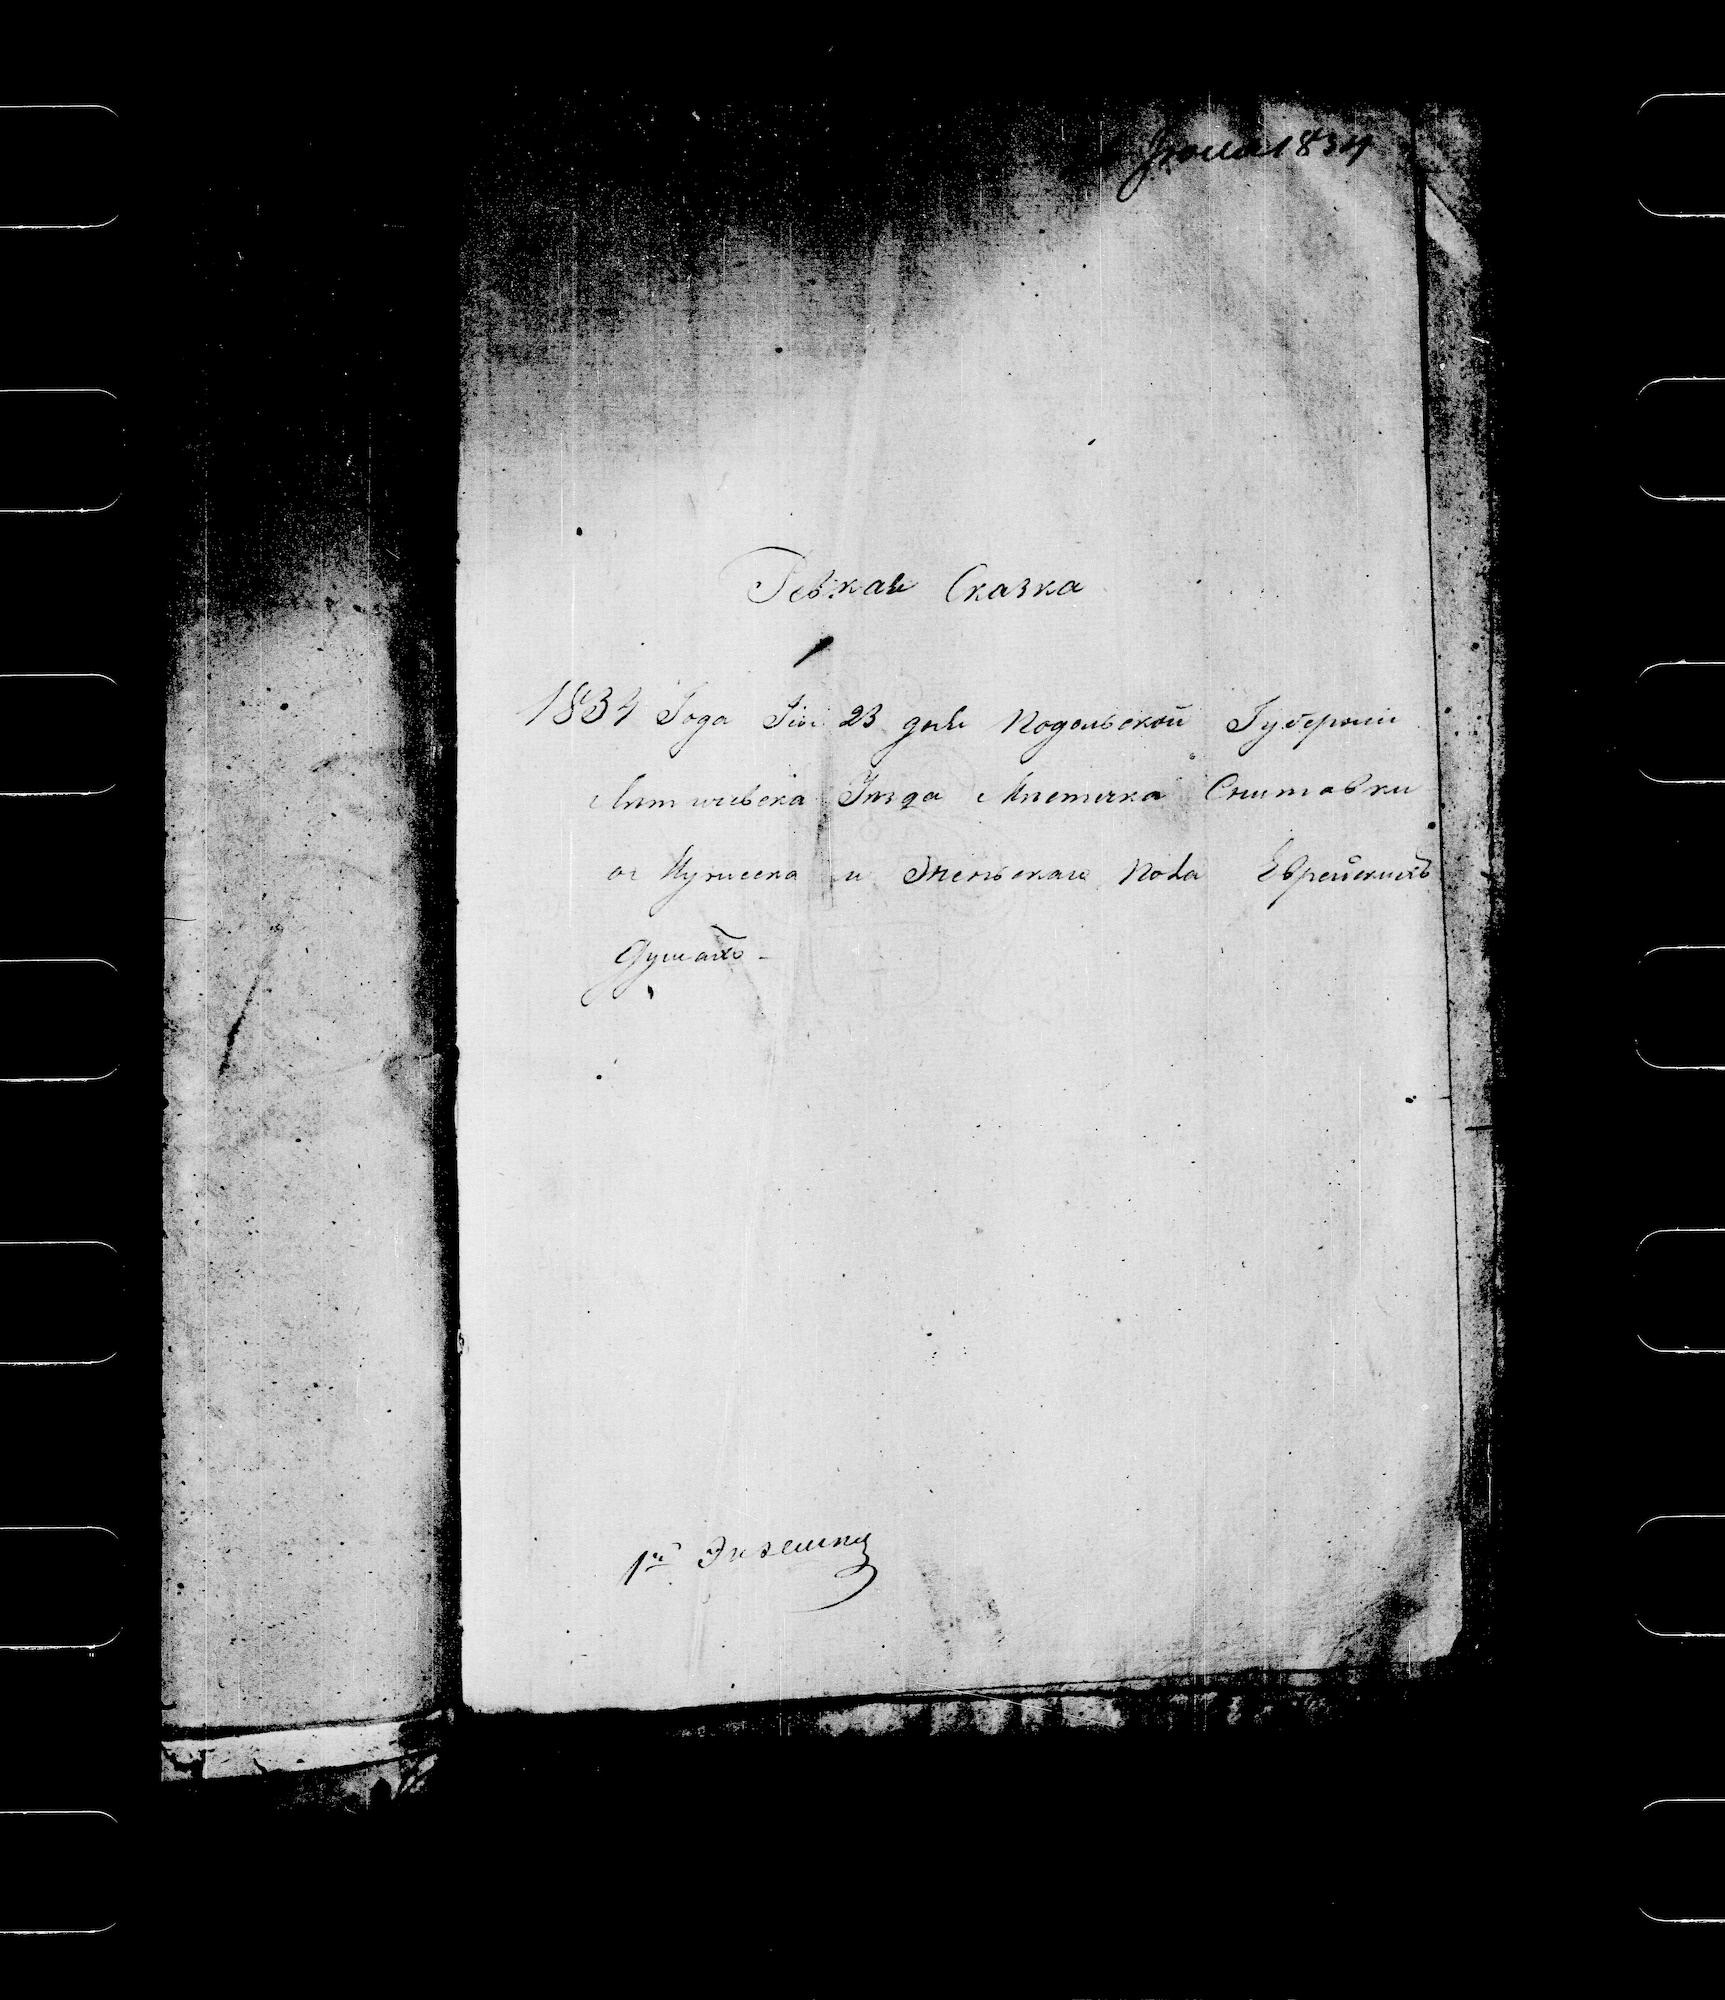 Июня 1834
Ревская Сказка
1834 Года Iюн 23 дня Подольской Губернии
Летичивска Уезда Местечка Снитовки
о Мужеска и Женьскаго Пола Еврейских
Душахъ
1й Экземпл